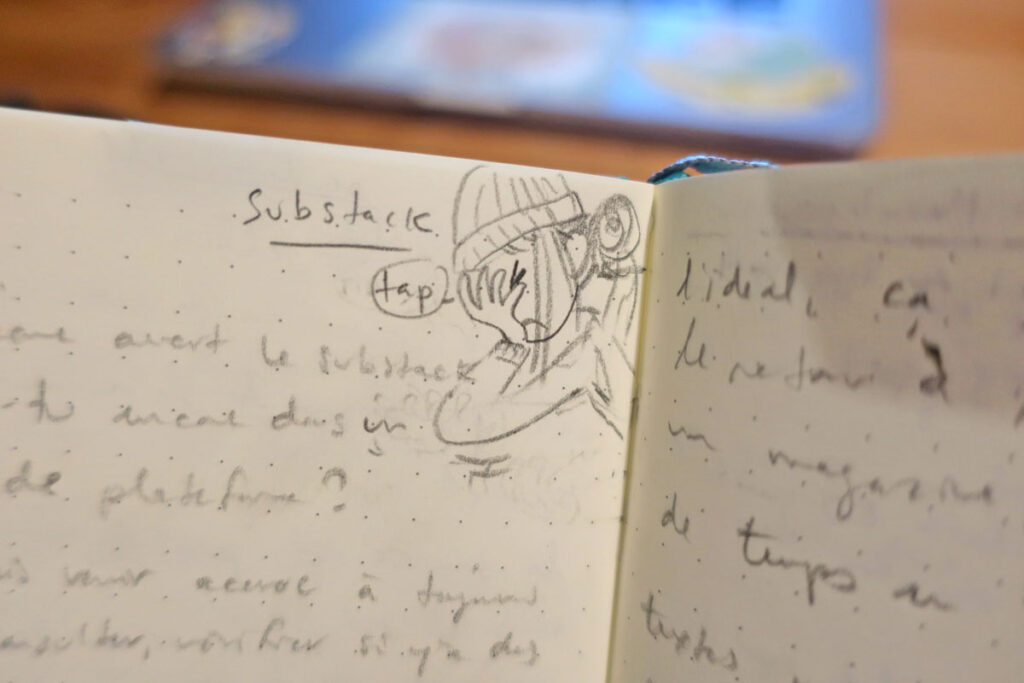 Substack
tap
avert le substack
-tu dans un
de plateforme ?
venir accroc à toujours
vérifier si y'a des
l'idéal, ça
le retour à
un magazine
de temps en
textes